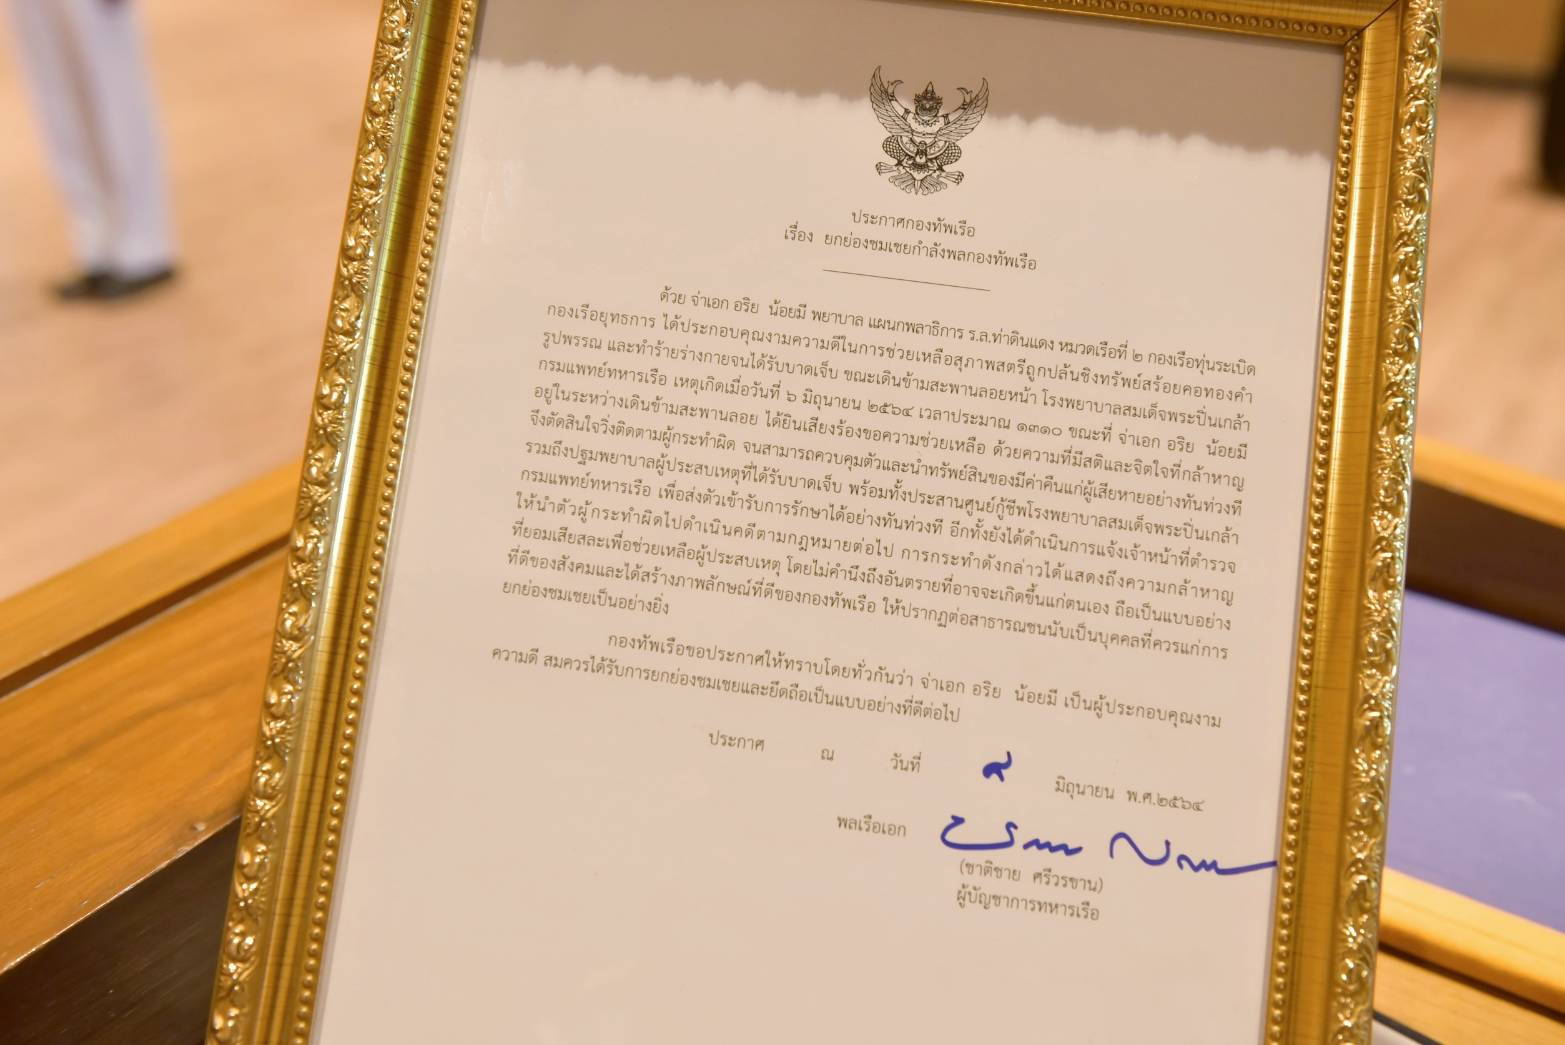 ประกาศกองทัพเรือ
เรื่อง ยกย่องชมเชยกำลังพลกองทัพเรือ
ด้วย จ่าเอก อริย น้อยมี พยาบาล แผนกพลาธิการ ร.ล.ท่าดินแดง หมวดเรือที่ ๒ กองเรือทุ่นระเบิด
กองเรือยุทธการ ได้ประกอบคุณงามความดีในการช่วยเหลือสุภาพสตรีถูกปล้นชิงทรัพย์สร้อยคอทองคำ
รูปพรรณ และทำร้ายร่างกายจนได้รับบาดเจ็บ ขณะเดินข้ามสะพานลอยหน้า โรงพยาบาลสมเด็จพระปิ่นเกล้า
กรมแพทย์ทหารเรือ เหตุเกิดเมื่อวันที่ ๖ มิถุนายน ๒๕๖๔ เวลาประมาณ ๑๓๑๐ ขณะที่ จ่าเอก อริย น้อยมี
อยู่ในระหว่างเดินข้ามสะพานลอย ได้ยินเสียงร้องขอความช่วยเหลือ ด้วยความที่มีสติและจิตใจที่กล้าหาญ
จึงตัดสินใจวิ่งติดตามผู้กระทำผิด จนสามารถควบคุมตัวและนำทรัพย์สินของมีค่าคืนแก่ผู้เสียหายอย่างทันท่วงที
รวมถึงปฐมพยาบาลผู้ประสบเหตุที่ได้รับบาดเจ็บ พร้อมทั้งประสานศูนย์กู้ชีพโรงพยาบาลสมเด็จพระปิ่นเกล้า
กรมแพทย์ทหารเรือ เพื่อส่งตัวเข้ารับการรักษาได้อย่างทันท่วงที อีกทั้งยังได้ดำเนินการแจ้งเจ้าหน้าที่ตำรวจ
ให้นำตัวผู้กระทำผิดไปดำเนินคดีตามกฎหมายต่อไป การกระทำดังกล่าวได้แสดงถึงความกล้าหาญ
ที่ยอมเสียสละเพื่อช่วยเหลือผู้ประสบเหตุ โดยไม่คำนึงถึงอันตรายที่อาจจะเกิดขึ้นแก่ตนเอง ถือเป็นแบบอย่าง
ที่ดีของสังคมและได้สร้างภาพลักษณ์ที่ดีของกองทัพเรือ ให้ปรากฏต่อสาธารณชนนับเป็นบุคคลที่ควรแก่การ
ยกย่องชมเชยเป็นอย่างยิ่ง
กองทัพเรือขอประกาศให้ทราบโดยทั่วกันว่า จ่าเอก อริย น้อยมี เป็นผู้ประกอบคุณงาม
ความดี สมควรได้รับการยกย่องชมเชยและยึดถือเป็นแบบอย่างที่ดีต่อไป
ประกาศ ณ วันที่ ๙ มิถุนายน พ.ศ.๒๕๖๔
พลเรือเอก
(ชาติชาย ศรีวรขาน)
ผู้บัญชาการทหารเรือ